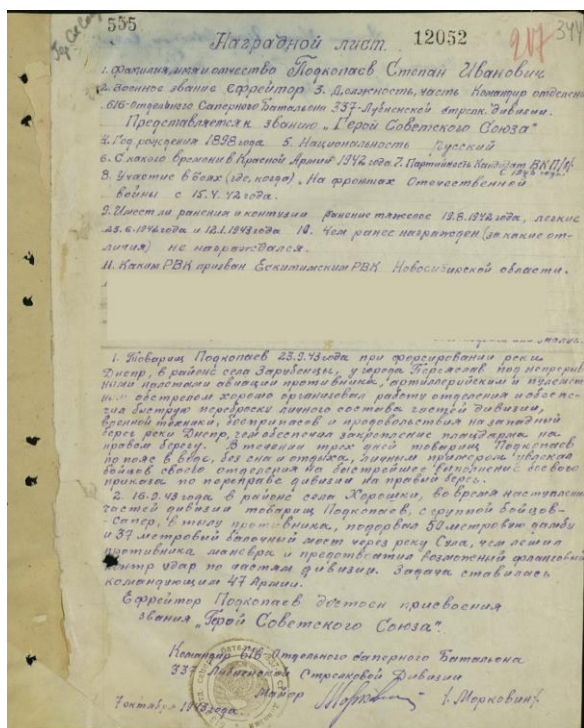 555
Наградной лист. 12052 207 344
1. Фамилия, имя и отчество Подкопаев Степан Иванович
2. Военное звание Ефрейтор 3. Должность, часть Командир отделен
616-Отдельного Саперного Батальона 337-Лубненской стрелк. дивизии.
Представляется к званию „Герой Советского Союза"
4. Год рождения 1898 года 5. Национальность русский
6. С какого времени в Красной Армии 1942 года 7. Партийность Кандидат ВКП/б/
8. Участие в боях (где, когда). На фронтах Отечественной
войны с 15.4.42 года.
9. Имеет ли ранения и контузии ранение тяжелое 19.8.1942 года, легкие
23.6.1942 года и 12.1.1943 года 10. Чем ранее награжден (за какие от-
личия) не награждался.
11. Каким РВК призван Ескитимским РВК Новосибирской области.
1. Товарищ Подкопаев 23.9.43 года при форсировании реки
Днепр, в районе села Зарубенцы, у города Переяслав под непрерыв
ными налетами авиации противника, артиллерийским и пулемет
ным обстрелом хорошо организовал работу отделения и обеспе-
чил быструю переброску личного состава частей дивизии,
военной техники, боеприпасов и продовольствия на западный
берег реки Днепр, чем обеспечил закрепление плацдарма на
правом берегу. В течении трех дней товарищ Подкопаев
по пояс в воде, без сна и отдыха, личным примером увлекал
бойцов своего отделения на быстрейшее выполнение боевого
приказа по переправе дивизии на правый берег.
2. 16.9.43 года в районе села Хорошки, во время наступлен
частей дивизии товарищ Подкопаев, с группой бойцов-
-сапер, в тылу противника, подорвал 50 метровую дамбу
и 37 метровый балочный мост через реку Сула, чем лишил
противника маневра и предотвратил возможный фланговый
контр удар по частям дивизии. Задача ставилась
командующим 47 Армии.
Ефрейтор Подкопаев достоен присвоения
звания „Герой Советского Союза".
Командир 616-Отдельного Саперного Батальона
337 Лубненской Стрелковой Дивизии
Майор /. Морковин/.
7 октября 1943 года